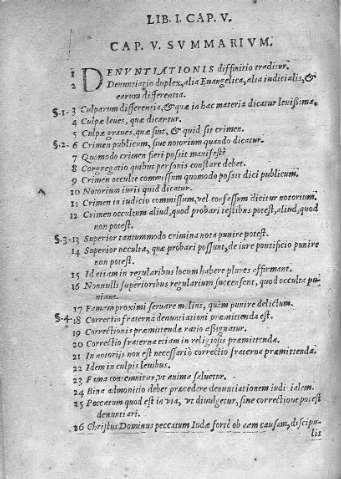 LIB. I. CAP. V.
CAP. V. SVMMARIVM.
1 DENVNTIATIONIS diffinitio traditur.
2 Denuntiatio duplex, alia Euangelica, alia iudicialis, &
earum differentia.
§.1. 3 Culparum differentia, & quæ in hac materia dicatur leuissima.
4 Culpæ leues, quæ dicantur.
5 Culpæ graues, quæ sint, & quid sit crimen.
§.2. 6 Crimen publicum, siue notorium quando dicatur.
7 Quomodo crimen fieri possit manifestũ.
8 Congregatio quibus personis constare debet.
9 Crimen occulte commissum quomodo possit dici publicum.
10 Notorium iuris quid dicatur.
11 Crimen in iudicio commissum, vel confessum dicitur notorium.
12 Crimen occultum aliud, quod probari testibus potest, aliud, quod
non potest.
§.3. 13 Superior tantummodo crimina nota punire potest.
14 Superior occulta, quæ probari possunt, de iure pontificio punire
non potest.
15 Id etiam in regularibus locum habere plures affirmant.
16 Nonnulli superioribus regularium succensent, quod occulta pu-
niant.
17 Famam proximi seruare melius, quim punire delictum.
§.4. 18 Correctio fraterna denuntiationi præmittenda est.
19 Correctionis præmittendæ ratio assignatur.
20 Correctio fraterna etiam in religiosis præmittenda.
21 In notorijs non est necessariò correctio fraterna præmittenda.
22 Idem in culpis leuibus.
23 Fama contemnitur, vt anima saluetur.
24 Bina admonitio debet præcedere denuntiationem iudi ialem.
25 Peccatum quod est in via, vt diuulgetur, sine correctione potest
denuntiari.
26 Christus Dominus peccatum Iudæ fortè ob eam causam, discipu-
lis